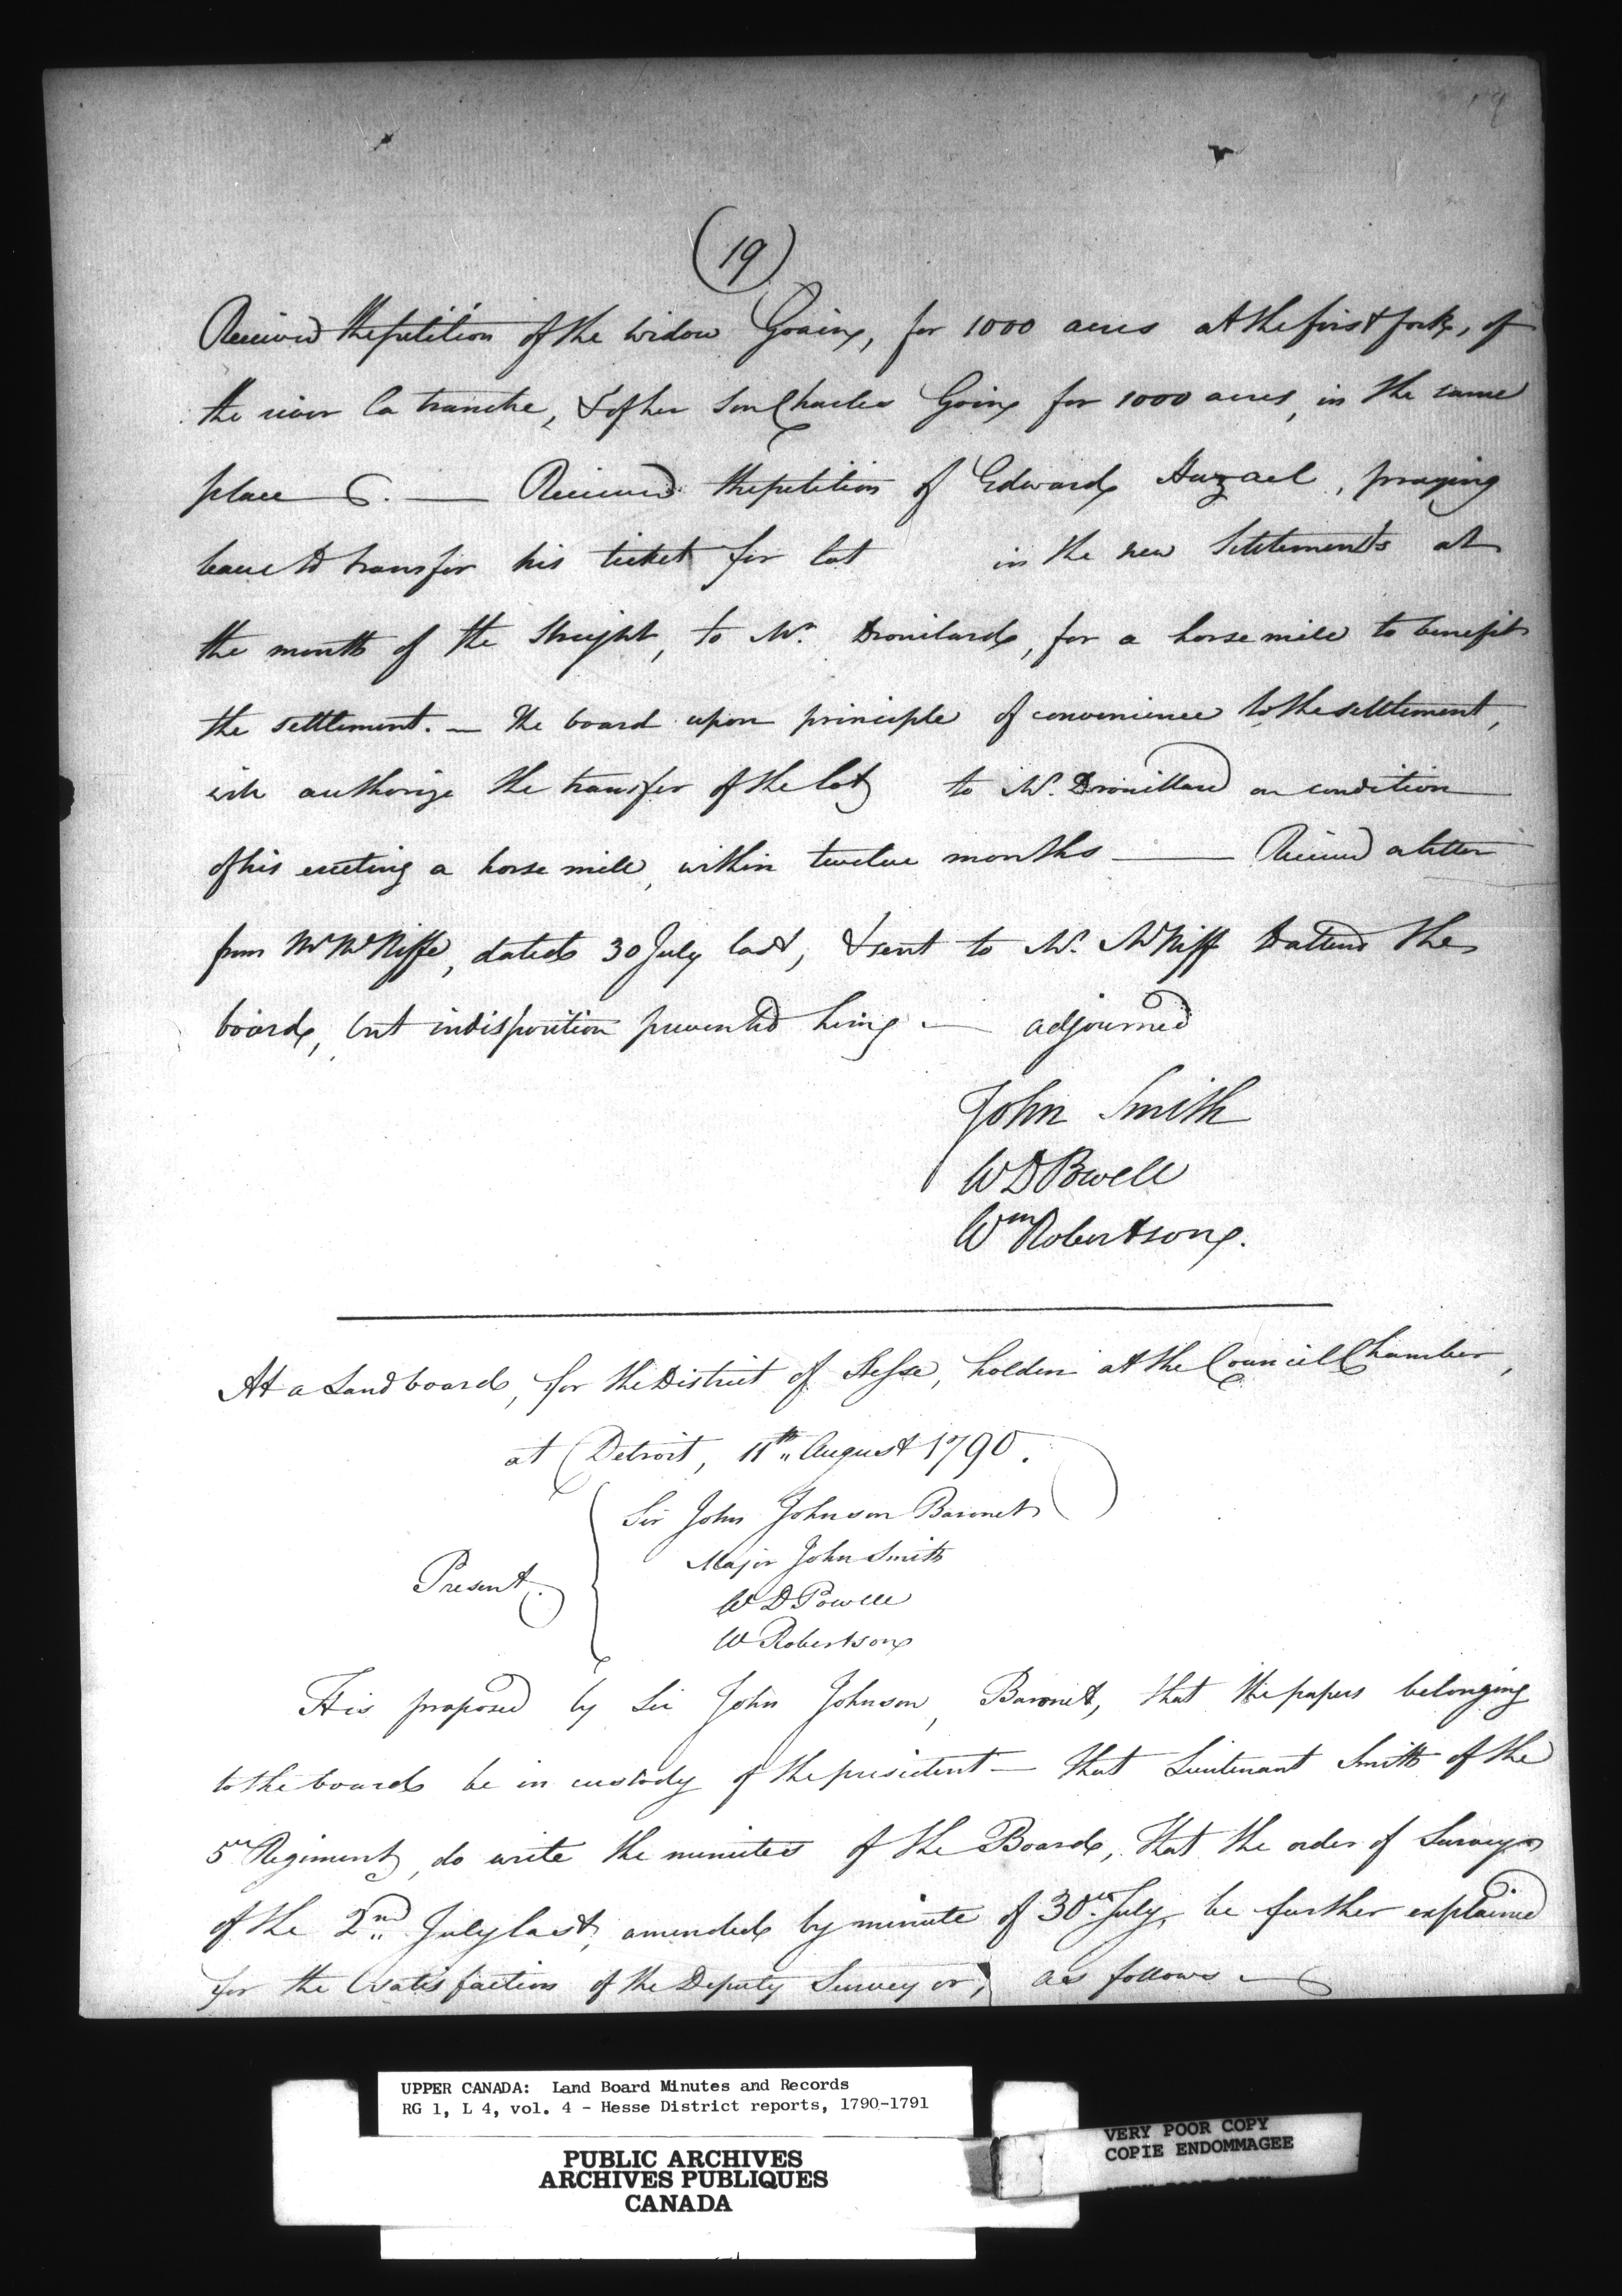 (19)
Received the petition of the widow Goain, for 1000 acres at the first fork, of
the river la tranche, & of her son Charles Goin for 1000 acres, in the same
place — Received the petition of Edward Hazael, praying
leave to transfer his ticket for lot in the new Settlements at
the mouth of the Streight, to Mr. Drouilard, for a horse mill to benefit
the settlement. — The board upon principle of convenience to the settlement,
will authorize the transfer of the lot to Mr. Drouillard on condition
of his erecting a horse mill, within twelve months — Received a letter
from Mr McNiffe, dated 30 July last, & sent to Mr. McNiff to attend the
board, but indisposition prevented him — adjourned
John Smith
W D Powell
Wm Robertson.
At a Land board, for the District of Hesse, holden at the Council Chamber,
at Detroit, 11th August 1790.
Sir John Johnson Baronet
Major John Smith
Present.
W D Powell
W Robertson
It is proposed by Sir John Johnson, Baronet, that the papers belonging
to the board be in custody of the president — that Lieutenant Smith of the
5th Regiment, do write the minutes of the Board, That the order of Survey
of the 2nd July last, amended by minute of 30th July, be further explained
for the satisfaction of the Deputy Surveyor, as follows —
UPPER CANADA: Land Board Minutes and Records
RG 1, L 4, vol. 4 - Hesse District reports, 1790-1791
PUBLIC ARCHIVES
ARCHIVES PUBLIQUES
CANADA
VERY POOR COPY
COPIE ENDOMMAGEE